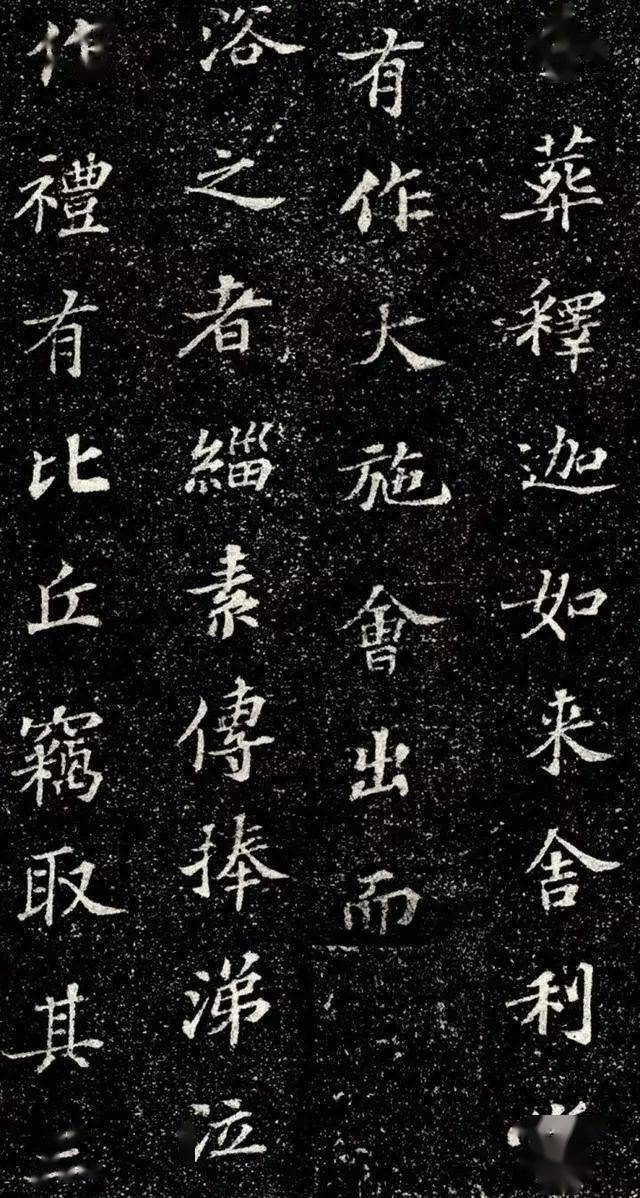 葬釋迦如来舍利
有作大施會出而
浴之者緇素傳捧涕泣
作禮有比丘竊取其三